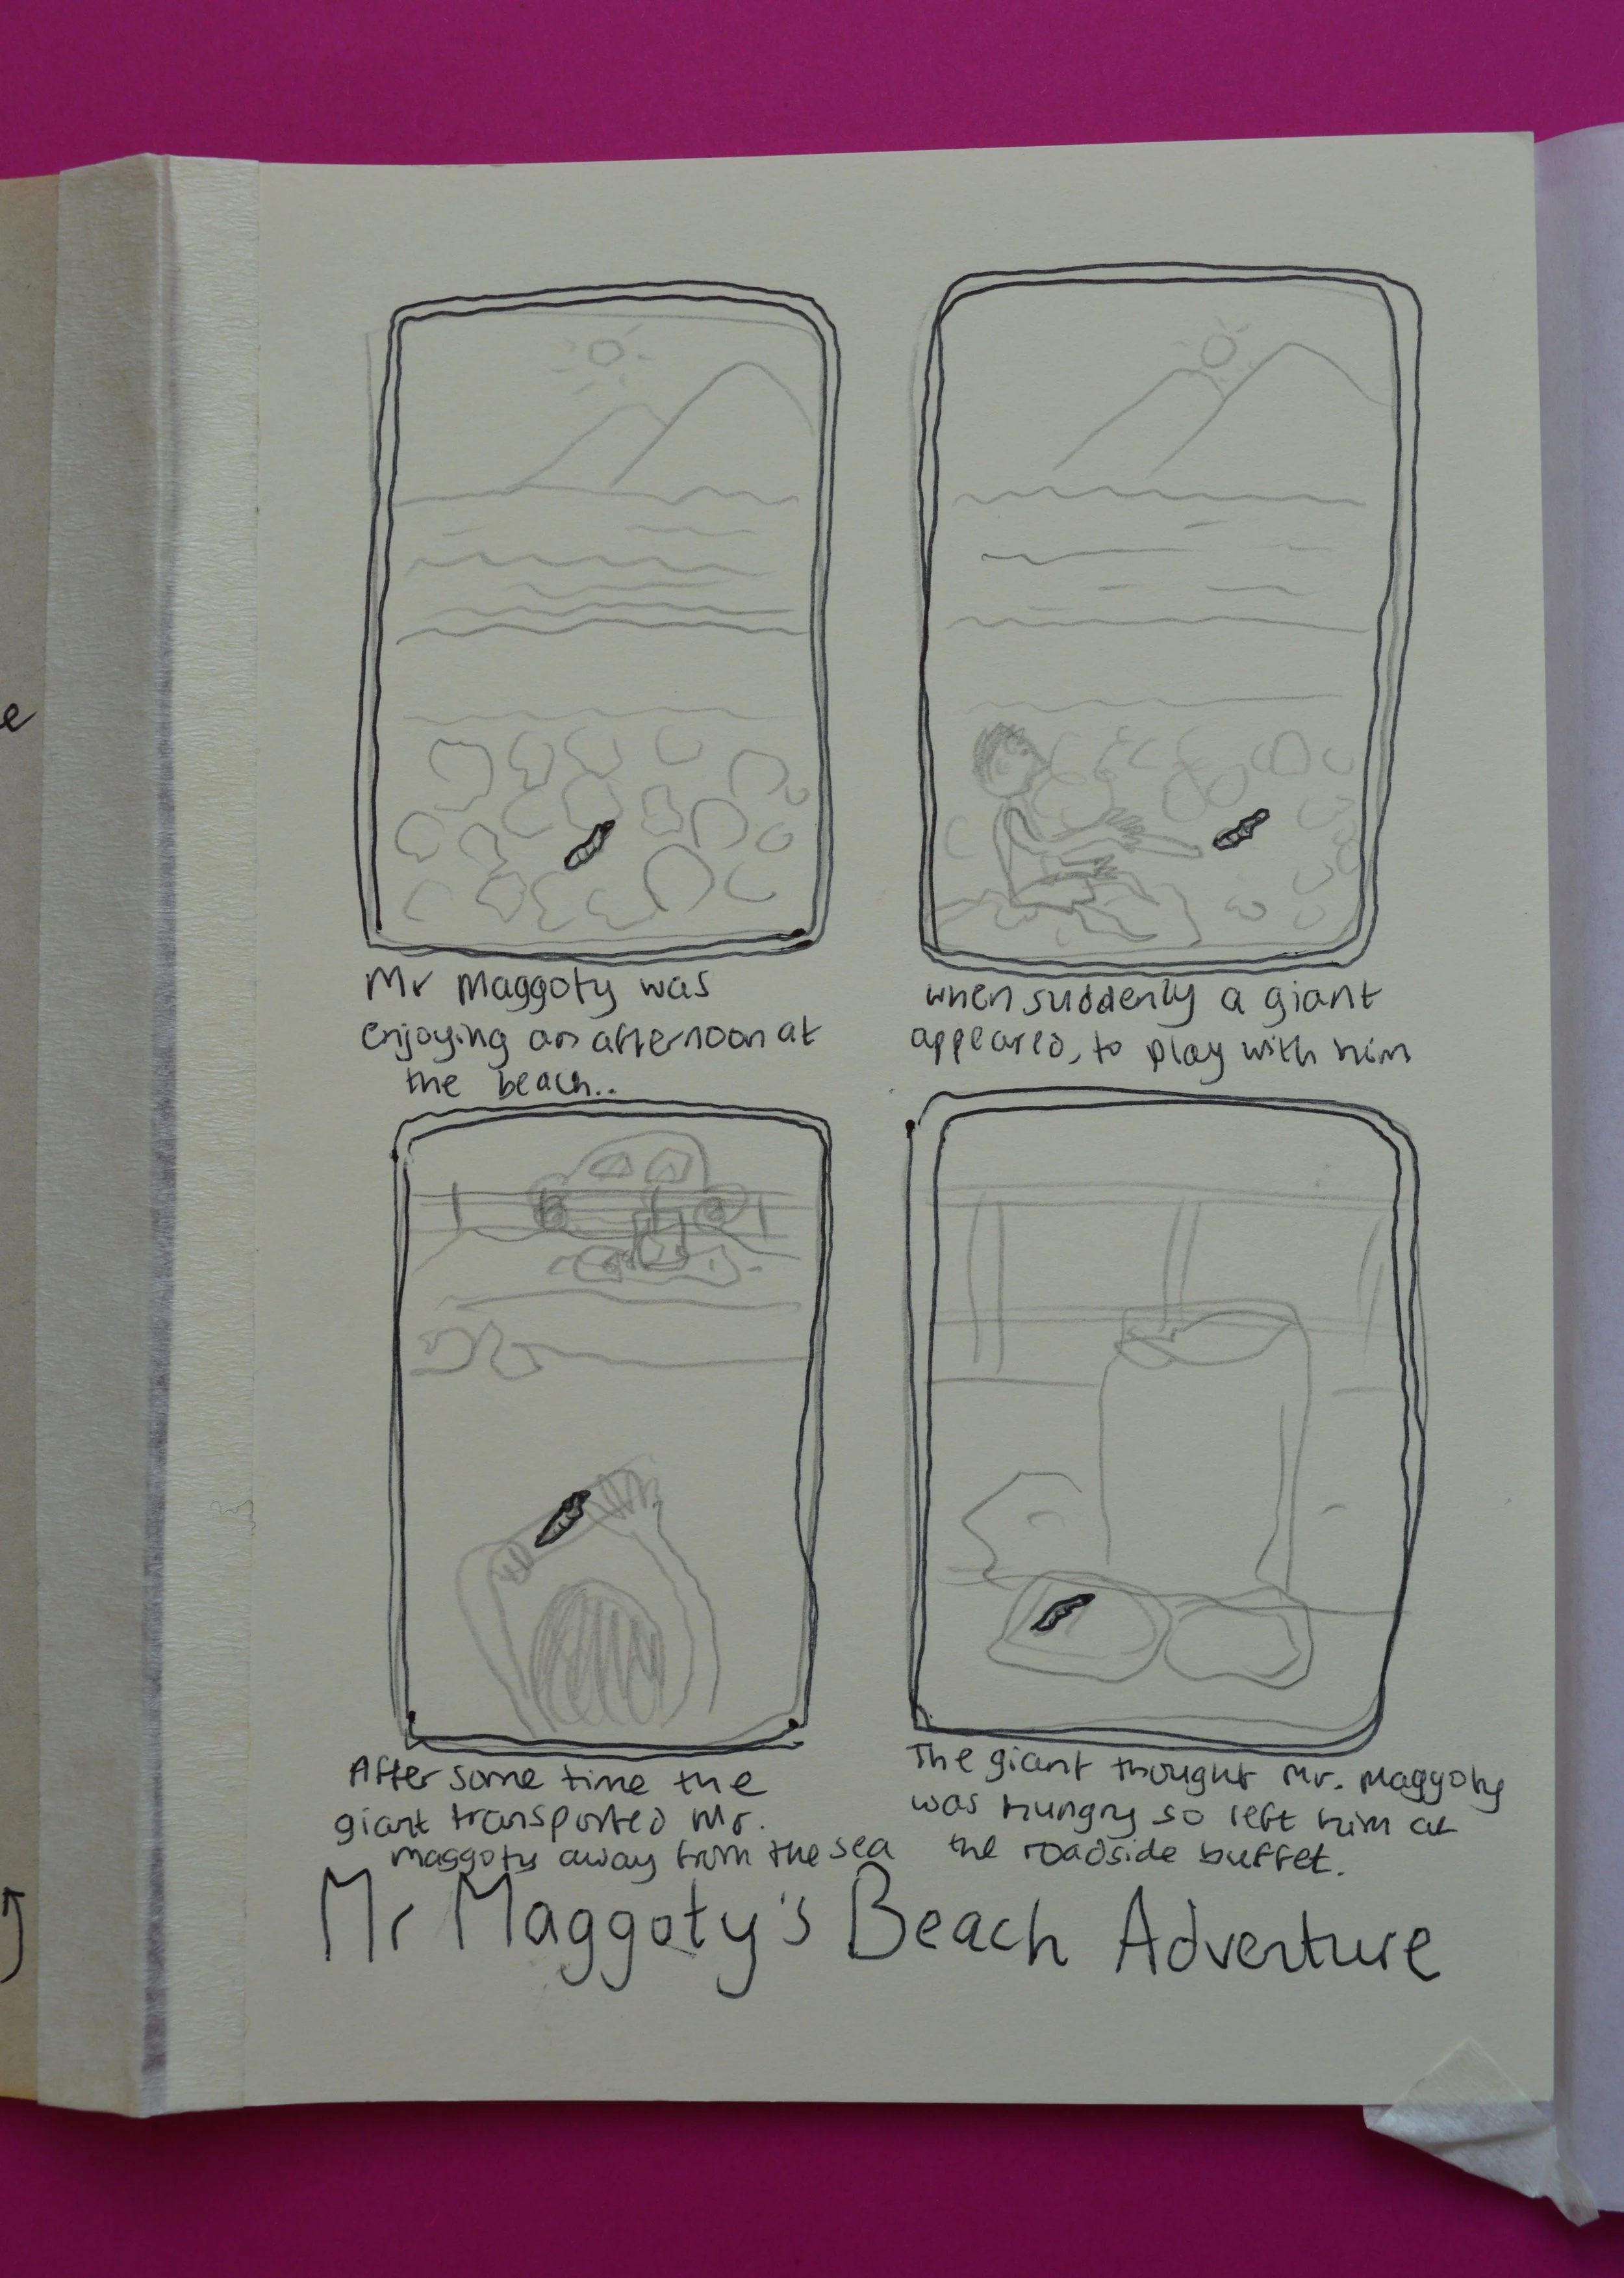 Mr Maggoty was
enjoying an afternoon at
the beach..
when suddenly a giant
appeared, to play with him
After some time the
giant transported Mr.
Maggoty away from the sea
The giant thought Mr. Maggoty
was hungry so left him at
the roadside buffet.
Mr Maggoty's Beach Adventure